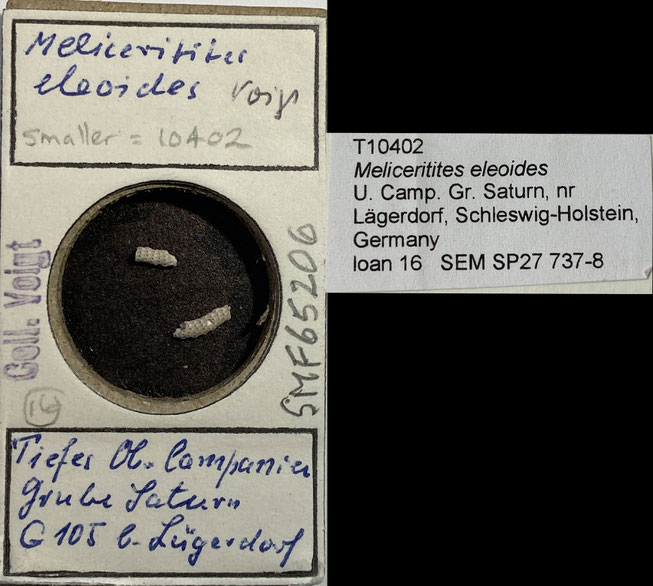 Meliceritites
eleoides Voigt
smaller = 10402
Coll. Voigt
16
SMF65206
Tiefes Ob. Campanien
Grube Saturn
G 105 b. Lägerdorf
T10402
Meliceritites eleoides
U. Camp. Gr. Saturn, nr
Lägerdorf, Schleswig-Holstein,
Germany
loan 16 SEM SP27 737-8